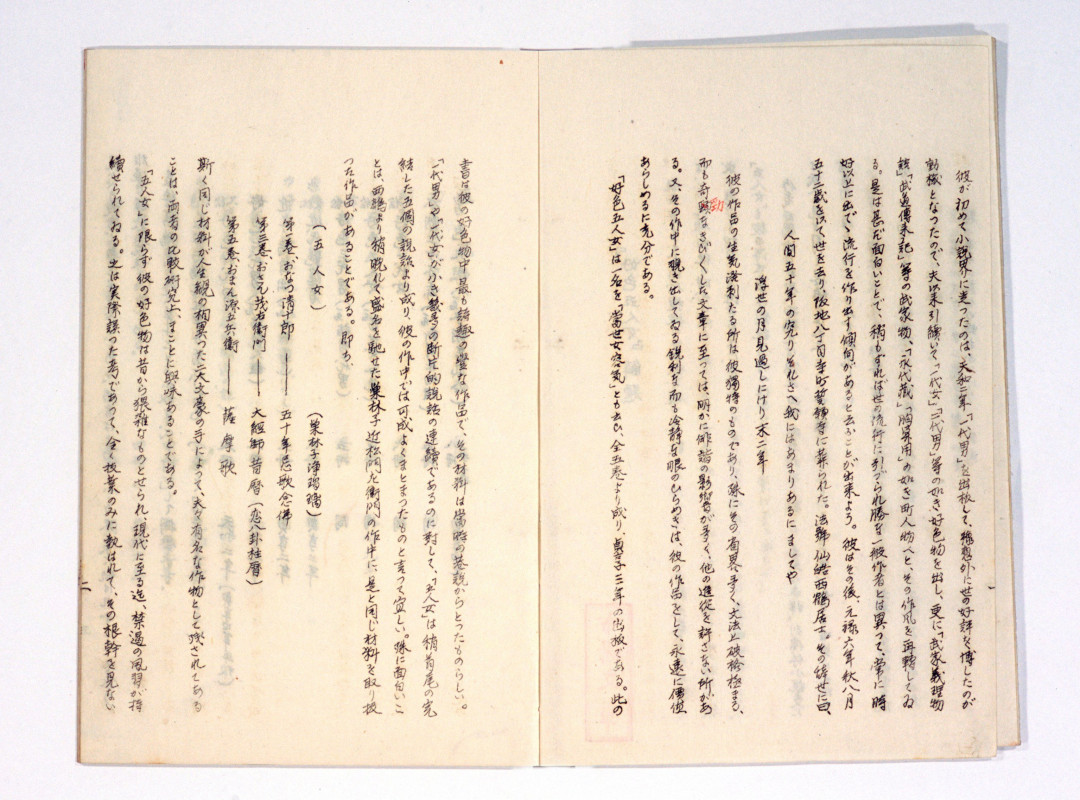 彼が初めて小説界に走つたのは、天和二年「一代男」を出板して、豫想外に世の好評を博したのが
動機となつたので、夫以来引續いて「一代女」「二代男」等の如き好色物を出し、更に「武家義理物
語」「武道傳来記」等の武家物、「永代蔵」「胸算用」の如き町人物へと、その作風を再轉してゐ
る。是は甚だ面白いことで、稍もすれば世の流行に引づられ勝な一般作者とは異つて、常に時
好以上に出でゝ流行を作り出す傾向があると云ふことが出来よう。彼はその後、元禄六年秋八月
五十二歳を以て世を去り、阪地八丁目寺町誓願寺に葬られた。法号仙皓西鶴居士。その辞世に曰、
人間五十年の究りそれさへ我にはあまりあるにましてや
浮世の月見過しにけり末二年
彼の作品の生気溌剌たる所は彼獨特のものであり、殊にその省畧多く、文法上破格極まる、
而も奇警なきびくした文章に至つては、明かに俳諧の影響が多く、他の追従を許さない所があ
る。又、その作中に覗き出してゐる鋭利な而も冷静な眼のひらめきは、彼の作品をして、永遠に價値
あらしめるに充分である。
「好色五人女」は一名を「當世女容気」とも云ひ、全五巻より成り、貞享三年の出板である。此の
書は彼の好色物中最も綺趣の豊な作品で、その材料は當時の巷説からとつたものらしい。
「一代男」や「一代女」が小さき一巻々の断片的説話の連續であるのに對して、「五人女」は稍首尾の完
結した五個の説話より成り、彼の作中では可成よくまとまつたものと言つて宜しい。殊に面白いこ
とは、西鶴より稍晩れて盛名を馳せた巣林子近松門左衛門の作中に、是と同じ材料を取り扱
つた作品があることである。即ち、
（五人女） （巣林子浄瑠璃）
第一巻、おなつ清十郎――五十年忌歌念佛
第三巻、おさん茂右衛門――大經師昔暦（恋八卦柱暦）
第五巻、おまん源五兵衛――薩摩歌
斯く同じ材料が人生観の相異つた二大文豪の手によつて、夫々有名な作物として残されてある
ことは、両者の比較研究上、まことに興味あることである。
「五人女」に限らず彼の好色物は昔から猥雑なものとせられ、現代に至る迄、禁遏の風習が持
續せられてゐる。之は実際誤つた考であつて、全く枝葉のみに執はれて、その根幹を見ない
二